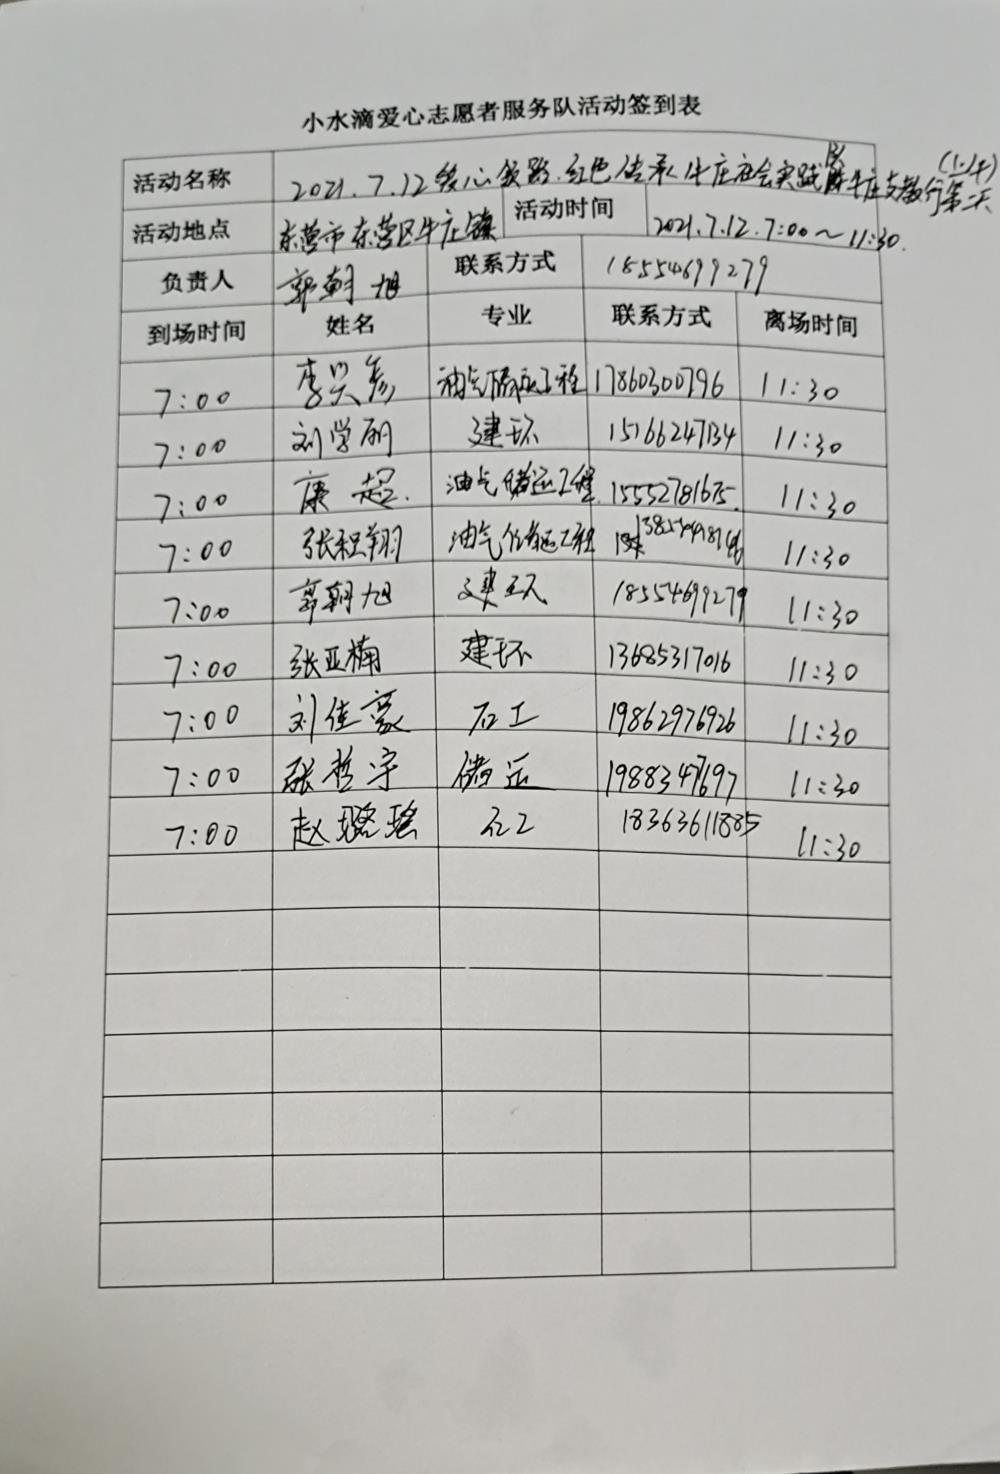 小水滴爱心志愿者服务队活动签到表
活动名称 2021.7.12 领路.红色传承牛庄社会实践 牛庄支教行第二天(上午)
活动地点 东营市东营区牛庄镇 活动时间 2021.7.12.7:00~11:30.
负责人 郭朝旭 联系方式 18554699279
到场时间 姓名 专业 联系方式 离场时间
7:00 李昊彦 油气储运工程 17860300796 11:30
7:00 刘学 建环 15166247134 11:30
7:00 康超. 油气储运工程 15552781675. 11:30
7:00 张翔 油气储运工程 11:30
7:00 郭朝旭 建环 18554699279 11:30
7:00 张亚楠 建环 13685317016 11:30
7:00 刘佳豪 石工 19862976926 11:30
7:00 张哲宇 储运 11:30
7:00 赵璐瑶 石工 18363611885 11:30